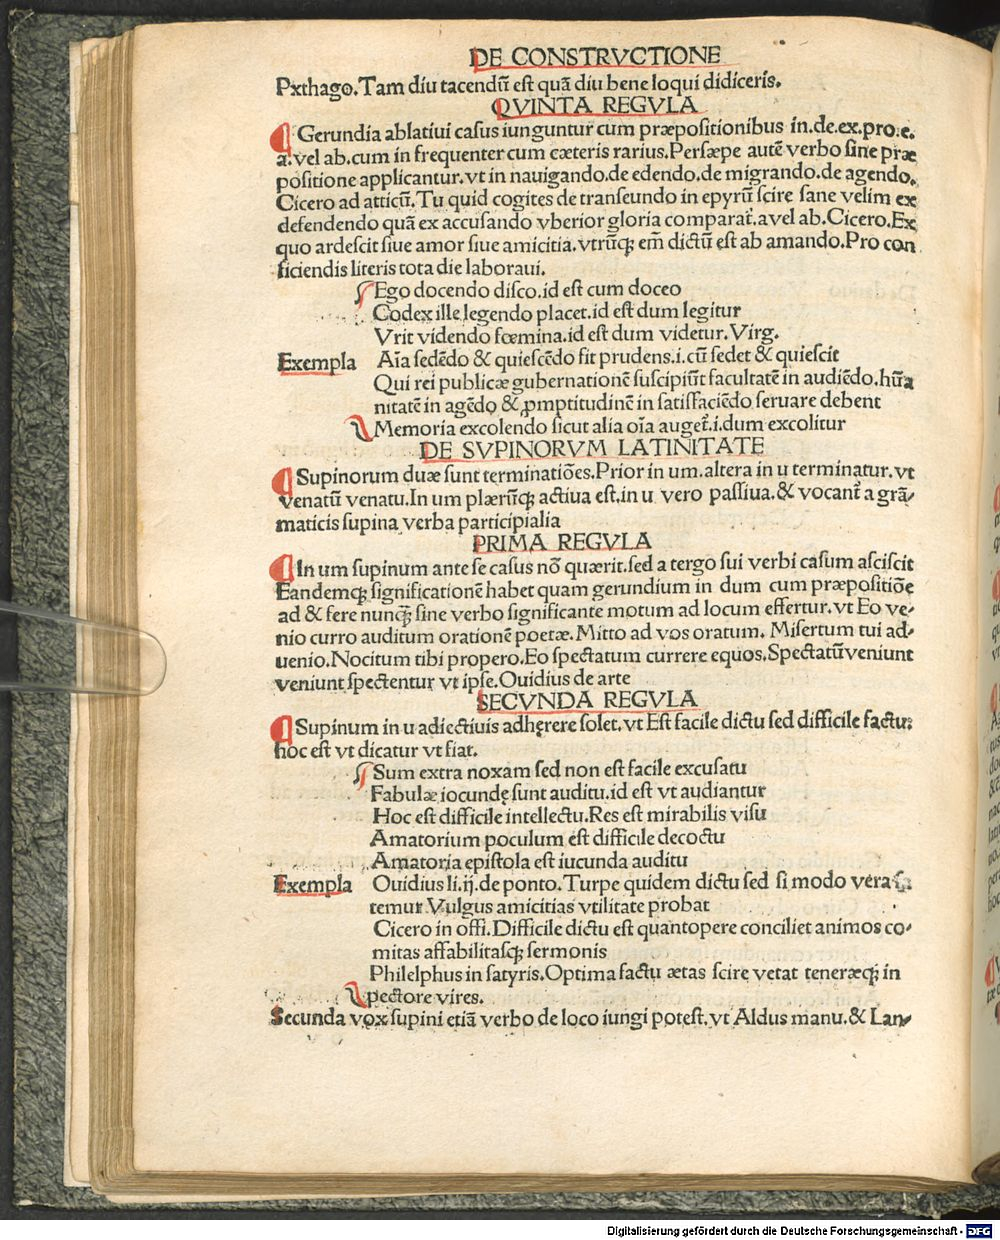 DE CONSTRVCTIONE
Pxthago. Tam diu tacendū est quā diu bene loqui didiceris.
QVINTA REGVLA
¶ Gerundia ablatiui casus iunguntur cum præpositionibus in.de.ex.pro.e.
a.vel ab.cum in frequenter cum cæteris rarius.Persæpe autē verbo sine præ
positione applicantur.vt in nauigando.de edendo.de migrando.de agendo.
Cicero ad atticū.Tu quid cogites de transeundo in epyrū scire sane velim ex
defendendo quā ex accusando vberior gloria comparat̄.a vel ab.Cicero.Ex
quo ardescit siue amor siue amicitia.vtrūqȝ em̄ dictū est ab amando.Pro con
ficiendis literis tota die laboraui.
Ego docendo disco.id est cum doceo
Codex ille legendo placet.id est dum legitur
Vrit videndo fœmina.id est dum videtur.Virg.
Exempla Aīa sedēdo & quiescēdo fit prudens.i.cū sedet & quiescit
Qui rei publicæ gubernationē suscipiūt facultatē in audiēdo.hūa
nitatē in agēdo & ꝓmptitudinē in satisfaciēdo seruare debent
Memoria excolendo sicut alia oīa auget̄.i.dum excolitur
DE SVPINORVM LATINITATE
¶ Supinorum duæ sunt terminatiōes.Prior in um.altera in u terminatur.vt
venatū venatu.In um plærūqȝ actiua est,in u vero passiua.& vocant̄ a grā-
maticis supina verba participialia
PRIMA REGVLA
¶ In um supinum ante se casus nō quærit.sed a tergo sui verbi casum asciscit
Eandemqȝ significationē habet quam gerundium in dum cum præpositiōe
ad & fere nunqȝ sine verbo significante motum ad locum effertur.vt Eo ve-
nio curro auditum orationē poetæ.Mitto ad vos oratum. Misertum tui ad-
uenio.Nocitum tibi propero.Eo spectatum currere equos.Spectatū veniunt
veniunt spectentur vt ipse.Ouidius de arte
SECVNDA REGVLA
¶ Supinum in u adiectiuis adhęrere solet.vt Est facile dictu sed difficile factu:
hoc est vt dicatur vt fiat.
Sum extra noxam sed non est facile excusatu
Fabulæ iocundę sunt auditu.id est vt audiantur
Hoc est difficile intellectu.Res est mirabilis visu
Amatorium poculum est difficile decoctu
Amatoria epistola est iucunda auditu
Exempla Ouidius li.ij.de ponto.Turpe quidem dictu sed si modo vera fa
temur Vulgus amicitias vtilitate probat
Cicero in offi.Difficile dictu est quantopere conciliet animos co-
mitas affabilitasqȝ sermonis
Philelphus in satyris.Optima factu ætas scire vetat teneræqȝ in
pectore vires.
Secunda vox supini etiā verbo de loco iungi potest.vt Aldus manu.& Lan-
Digitalisierung gefördert durch die Deutsche Forschungsgemeinschaft - DFG